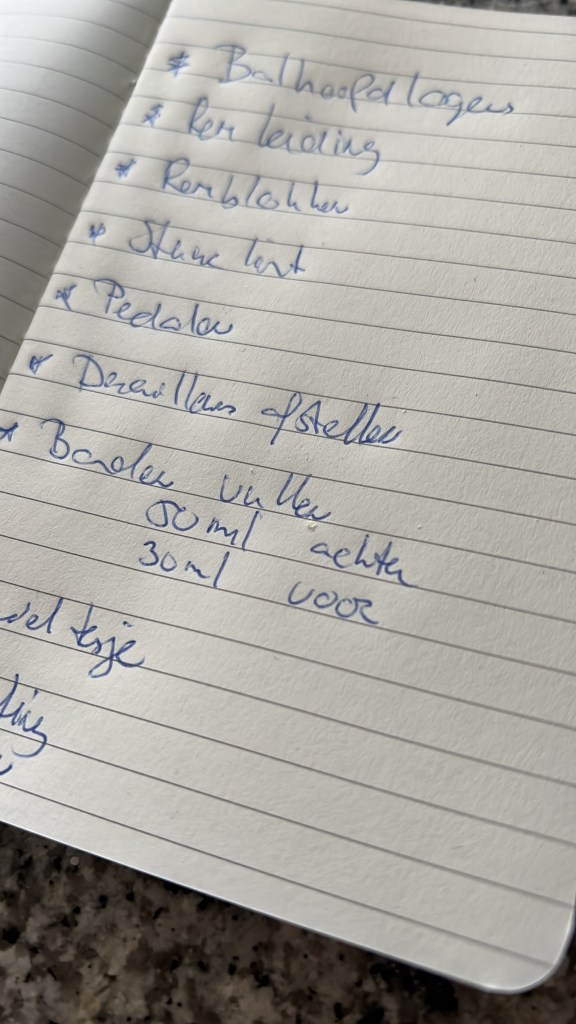 * Balhoofdlagers
* Rem leiding
* Remblokken
* Stuur lint
* Pedalen
* Derailleurs afstellen
* Banden vullen
50 ml achter
30 ml voor
tasje